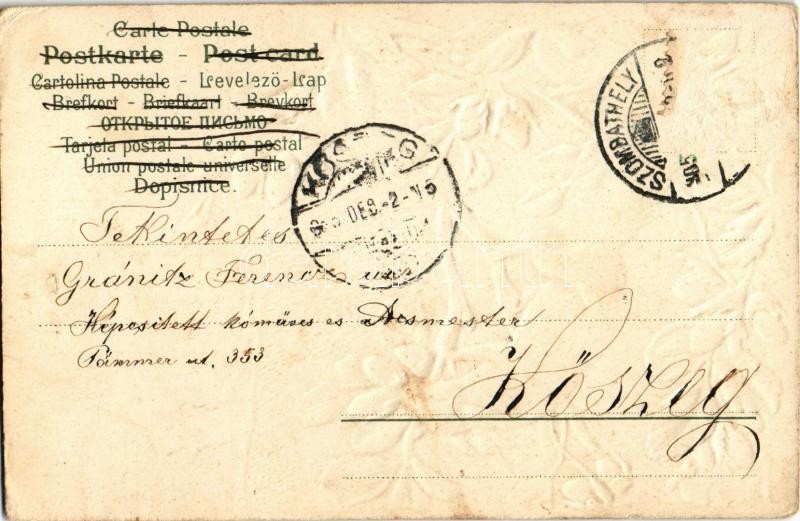 Carte Postale
Postkarte - Post card
Cartolina Postale - Levelező-Lap
Brefkort - Briefkaart - Brevkort
ОТКРЫТОЕ ПИСЬМО
Tarjeta postal - Carte postal
Union postale universelle
Dopisnice.
KŐSZEG
DEC. -2-
SZOMBATHELY
905
Tekintetes
Gránitz Ferencz
Képesitett kőműves es Acsmester
353
Kőszeg